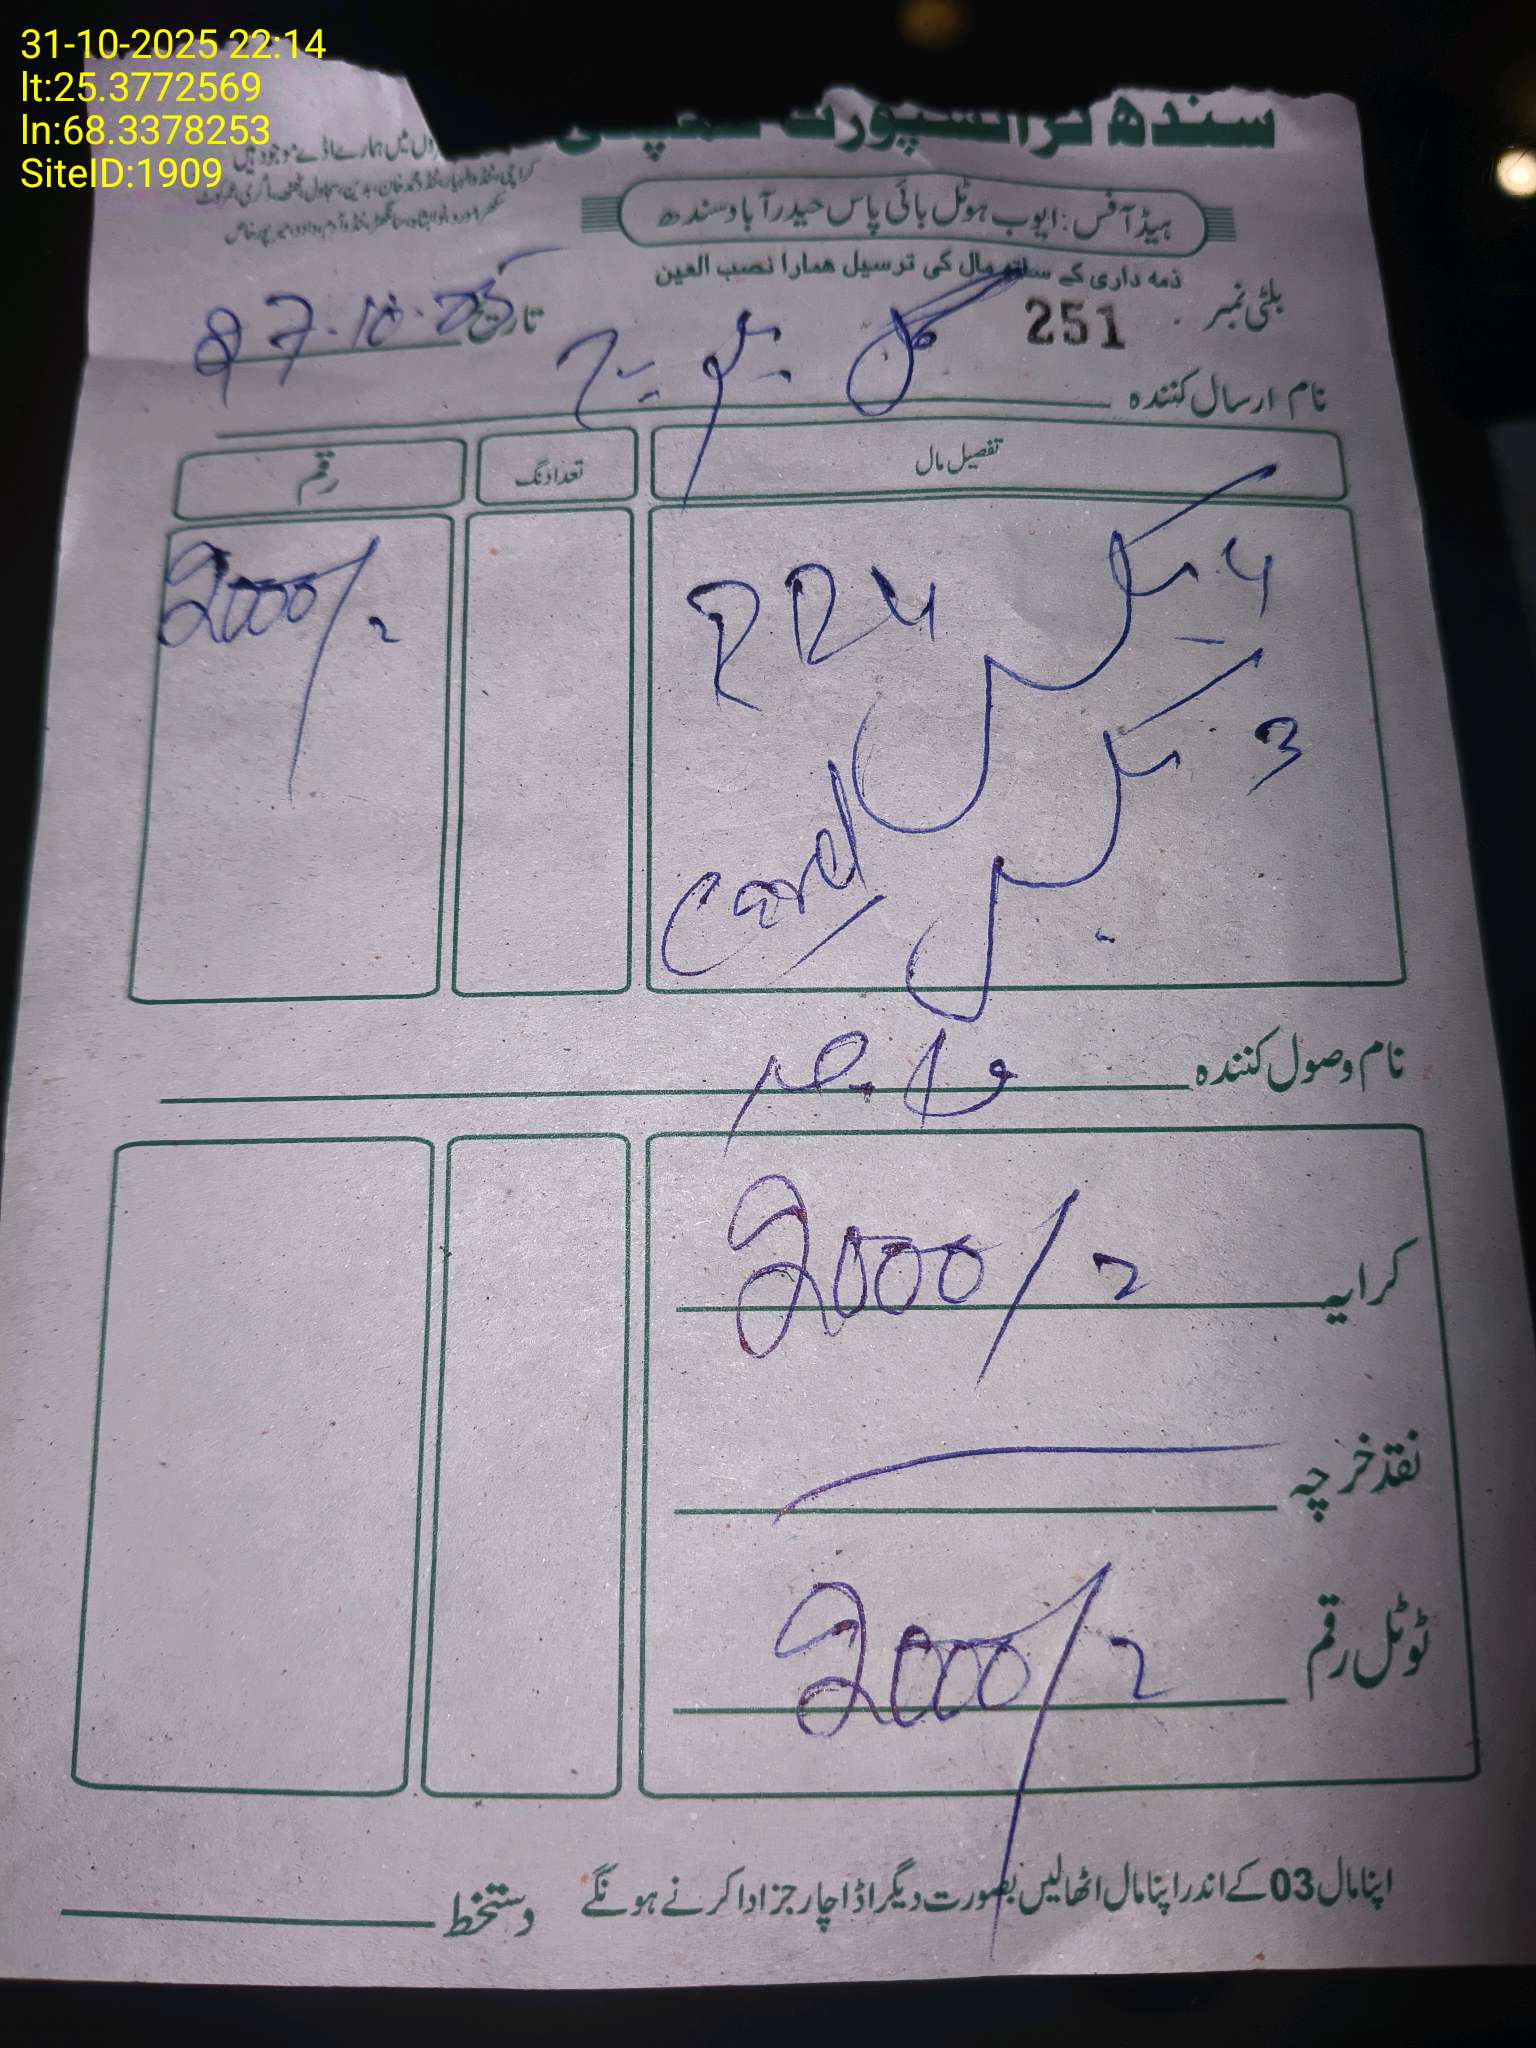 31-10-2025 22:14
lt:25.3772569
ln:68.3378253
SiteID:1909
سندھ ٹرانسپورٹ کمپنی
میں ہمارے اڈے موجود ہیں
ہیڈ آفس: ایوب ہوٹل بائی پاس حیدرآباد سندھ
ذمہ داری کے ساتھ مال کی ترسیل ہمارا نصب العین
بلٹی نمبر 251
تاریخ 27-10-25
نام ارسال کنندہ گل
تفصیل مال تعداد نگ رقم
4 بکس RRU 2000/=
3 بکس Card
نام وصول کنندہ
کرایہ 2000/=
نقد خرچہ
ٹوٹل رقم 2000/=
اپنا مال 03 کے اندر اپنا مال اٹھالیں بصورت دیگر اڈا چارجز ادا کرنے ہونگے
دستخط